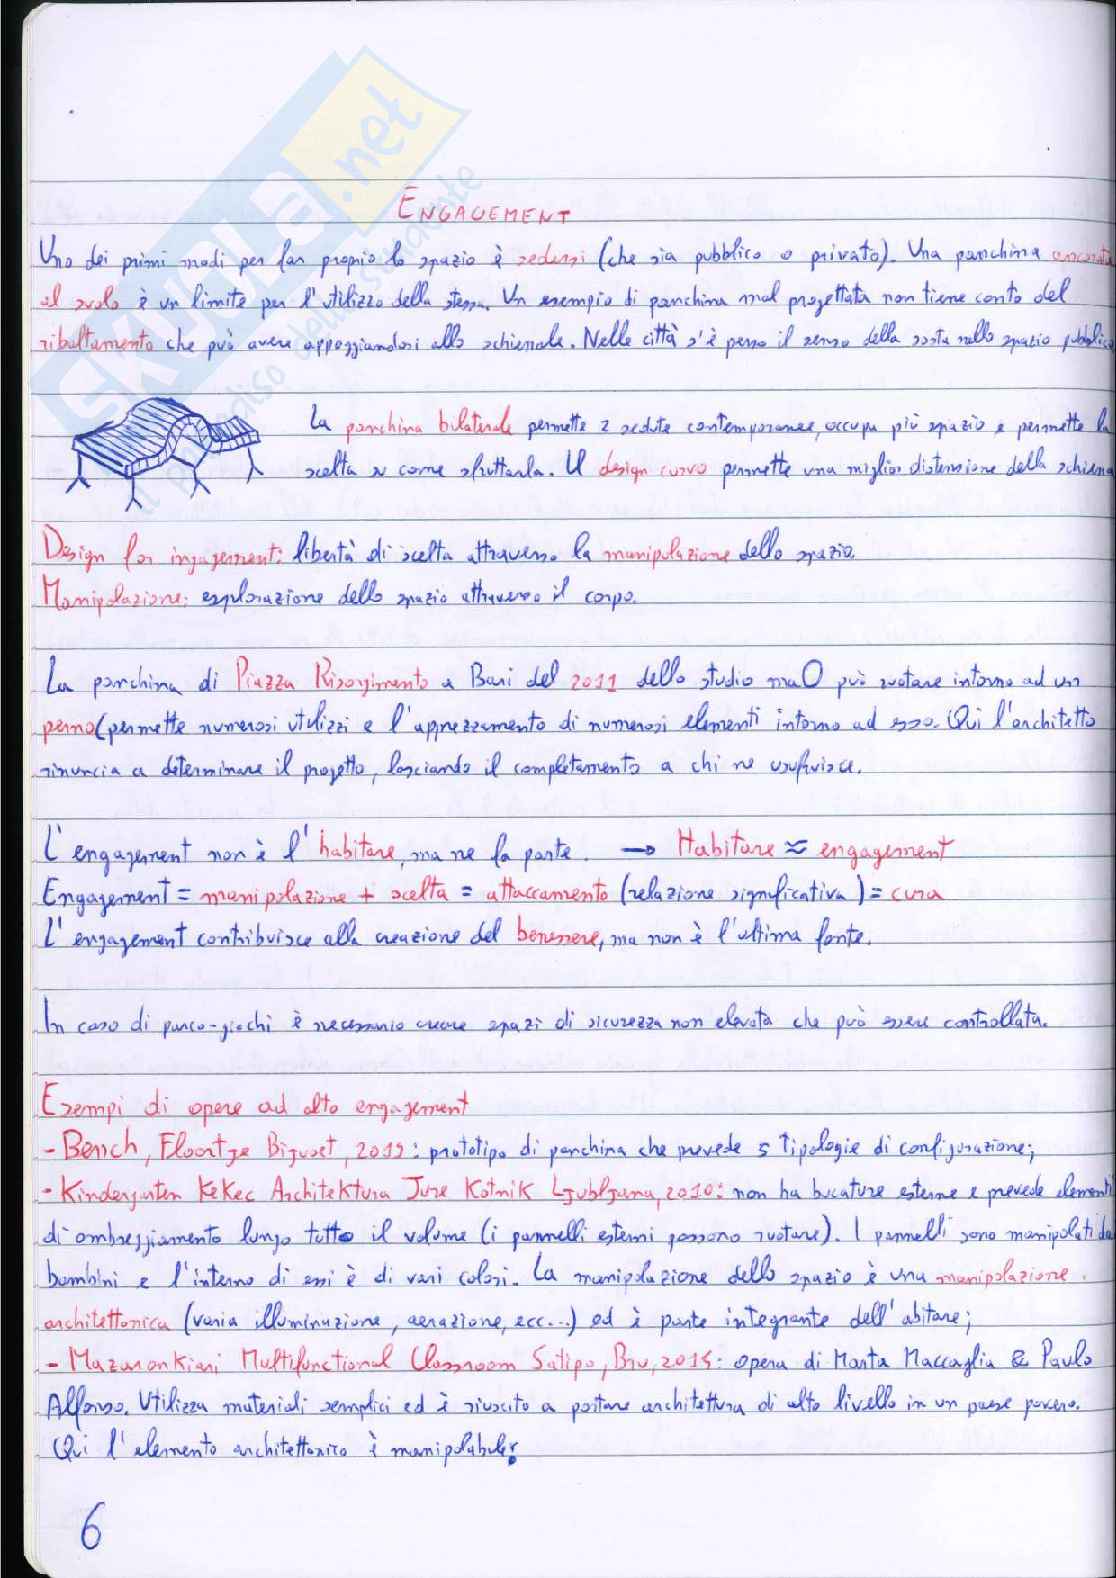 SKUOLA.net
il paradiso dello studente
ENGAGEMENT
Uno dei primi modi per far proprio lo spazio è sedersi (che sia pubblico o privato). Una panchina ancorata
al suolo è un limite per l'utilizzo della stessa. Un esempio di panchina mal progettata non tiene conto del
ribaltamento che può avere appoggiandosi allo schienale. Nelle città s'è perso il senso della sosta nello spazio pubblico
La panchina bilaterale permette 2 sedute contemporanee, occupa più spazio e permette la
scelta su come sfruttarla. Il design curvo permette una miglior distensione della schiena
Design for ingagement: libertà di scelta attraverso la manipolazione dello spazio.
Manipolazione: esplorazione dello spazio attraverso il corpo.
La panchina di Piazza Risorgimento a Bari del 2011 dello studio maO può ruotare intorno ad un
perno (permette numerosi utilizzi e l'apprezzamento di numerosi elementi intorno ad esso. Qui l'architetto
rinuncia a determinare il progetto, lasciando il completamento a chi ne usufruisce.
L'engagement non è l'habitare, ma ne fa parte. → Habitare ≈ engagement
Engagement = manipolazione + scelta = attaccamento (relazione significativa) = cura
L'engagement contribuisce alla creazione del benessere, ma non è l'ultima fonte.
In caso di parco-giochi è necessario creare spazi di sicurezza non elevata che può essere controllata.
Esempi di opere ad alto engagement
- Bench, : prototipo di panchina che prevede 5 tipologie di configurazione;
- Kindergarten Kekec Architektura Jure Kotnik Ljubljana, 2010: non ha bucature esterne e prevede elementi
di ombreggiamento lungo tutto il volume (i pannelli esterni possono ruotare). I pannelli sono manipolati da
bambini e l'interno di essi è di vari colori. La manipolazione dello spazio è una manipolazione
architettonica (varia illuminazione, aerazione, ecc...) ed è parte integrante dell'abitare;
- Mazaronkiari Multifunctional Classroom Satipo, : opera di Marta Maccaglia & Paulo
Alfonso. Utilizza materiali semplici ed è riuscito a portare architettura di alto livello in un paese povero.
Qui l'elemento architettonico è manipolabile;
6